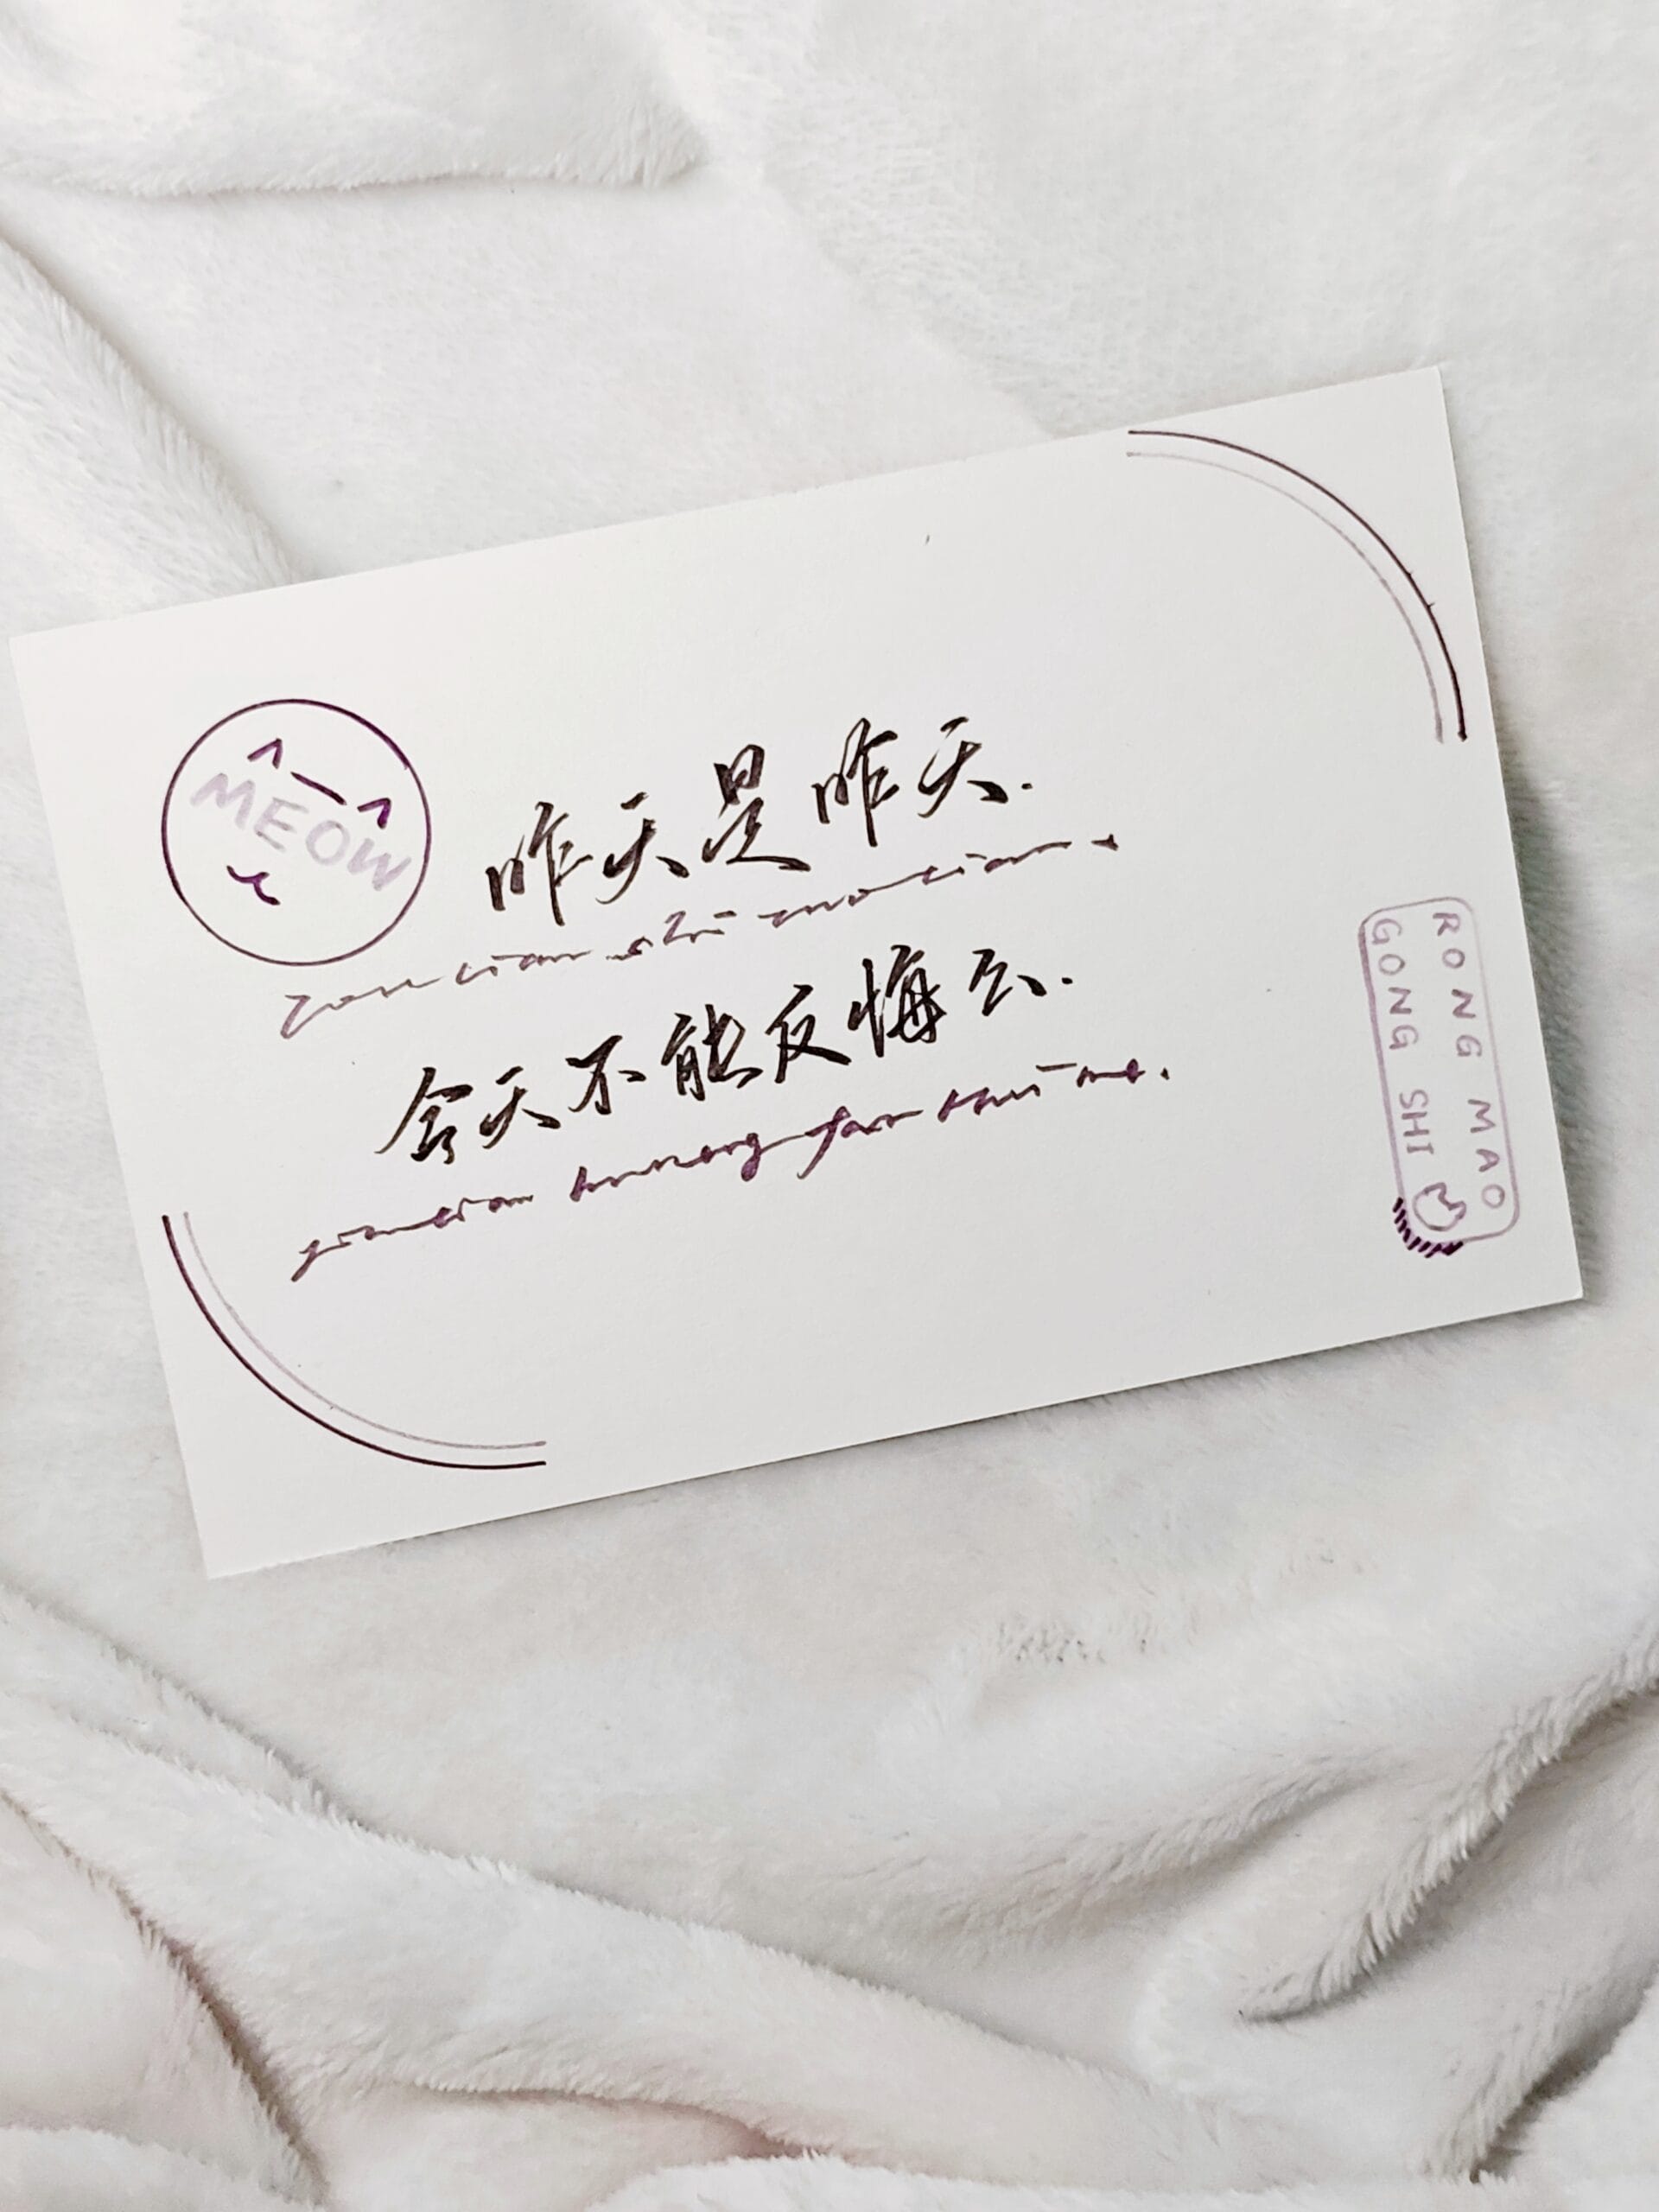 MEOW
昨天是昨天.
zuotian shi zuotian.
今天不能反悔么.
jintian buneng fanhui me.
RONG MAO
GONG SHI